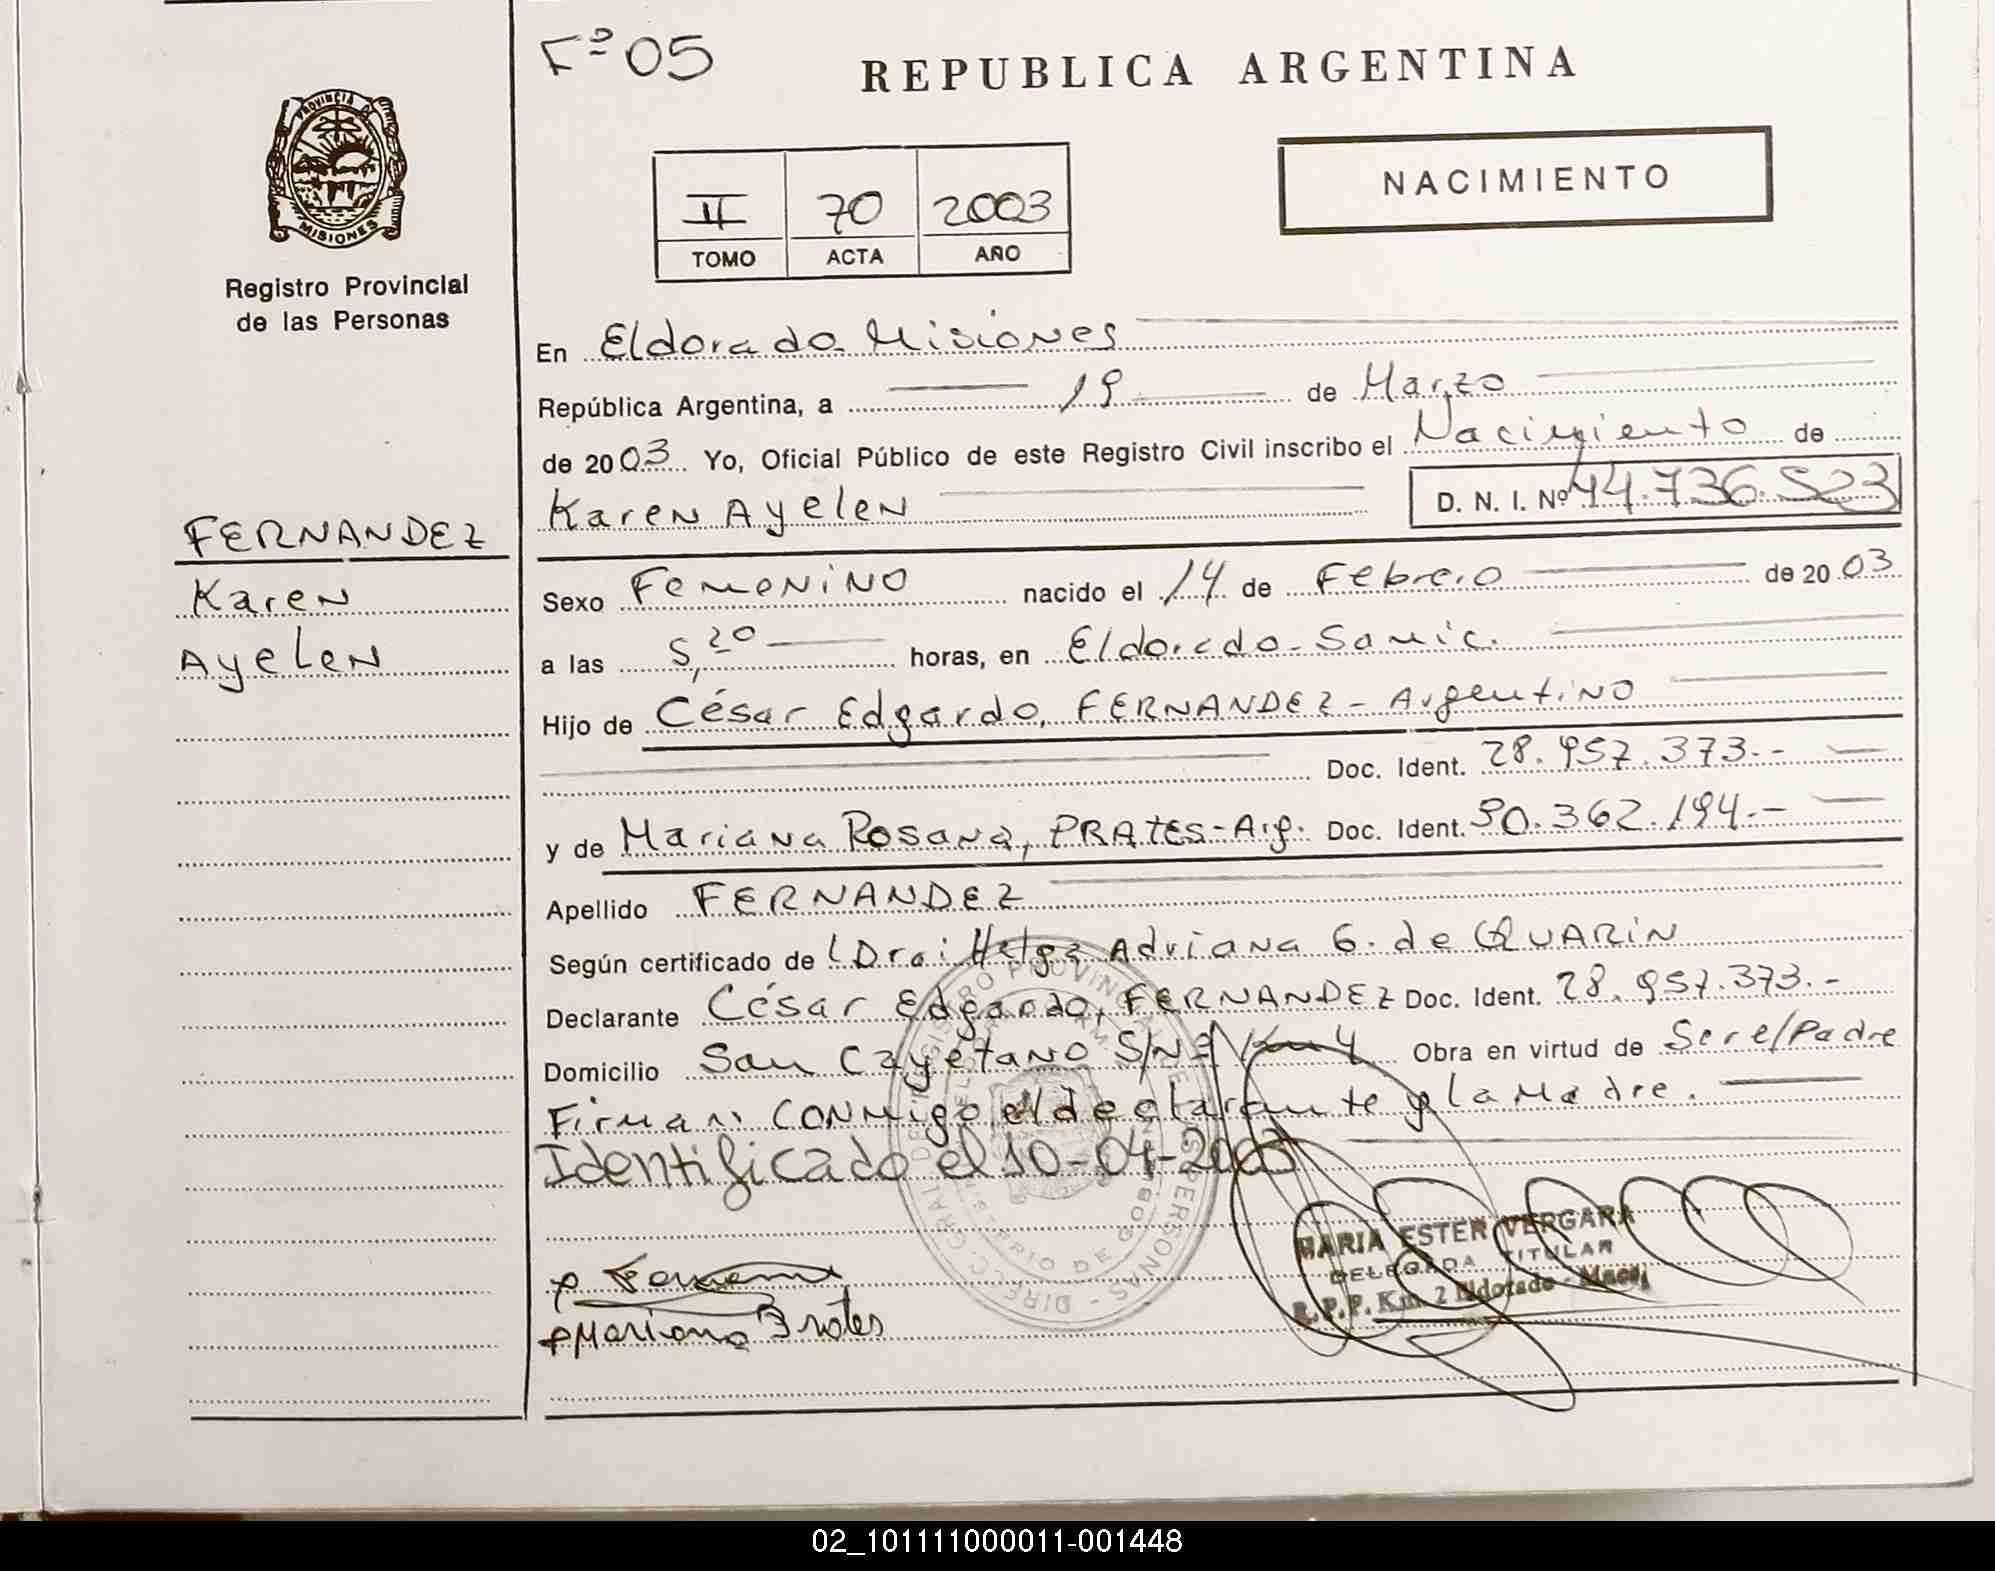 Fº 05
REPUBLICA ARGENTINA
PROVINCIA DE
MISIONES
Registro Provincial
de las Personas
II 70 2003
TOMO ACTA AÑO
NACIMIENTO
En Eldorado Misiones
República Argentina, a 19 de Marzo
de 2003 Yo, Oficial Público de este Registro Civil inscribo el Nacimiento de
Karen Ayelen D. N. I. Nº 44.736.523
FERNANDEZ
Karen
Ayelen
Sexo Femenino nacido el 14 de Febrero de 2003
a las 5,20 horas, en Eldorado - Samic.
Hijo de César Edgardo, FERNANDEZ - Argentino
Doc. Ident. 28.957.373.-
y de Mariana Rosana, PRATES - Arg. Doc. Ident. 30.362.194.-
Apellido FERNANDEZ
Según certificado de Dra: Helga Adriana G. de QUARIN
Declarante César Edgardo, FERNANDEZ Doc. Ident. 28.957.373.-
Domicilio San Cayetano S/Nº Km 4 Obra en virtud de Ser el/Padre
Firman conmigo el declarante y la Madre.
Identificado el 10-04-2003
MARIA ESTER VERGARA
DELEGADA TITULAR
R.P.P. Km. 2 Eldorado -
Mariana Prates
02_101111000011-001448